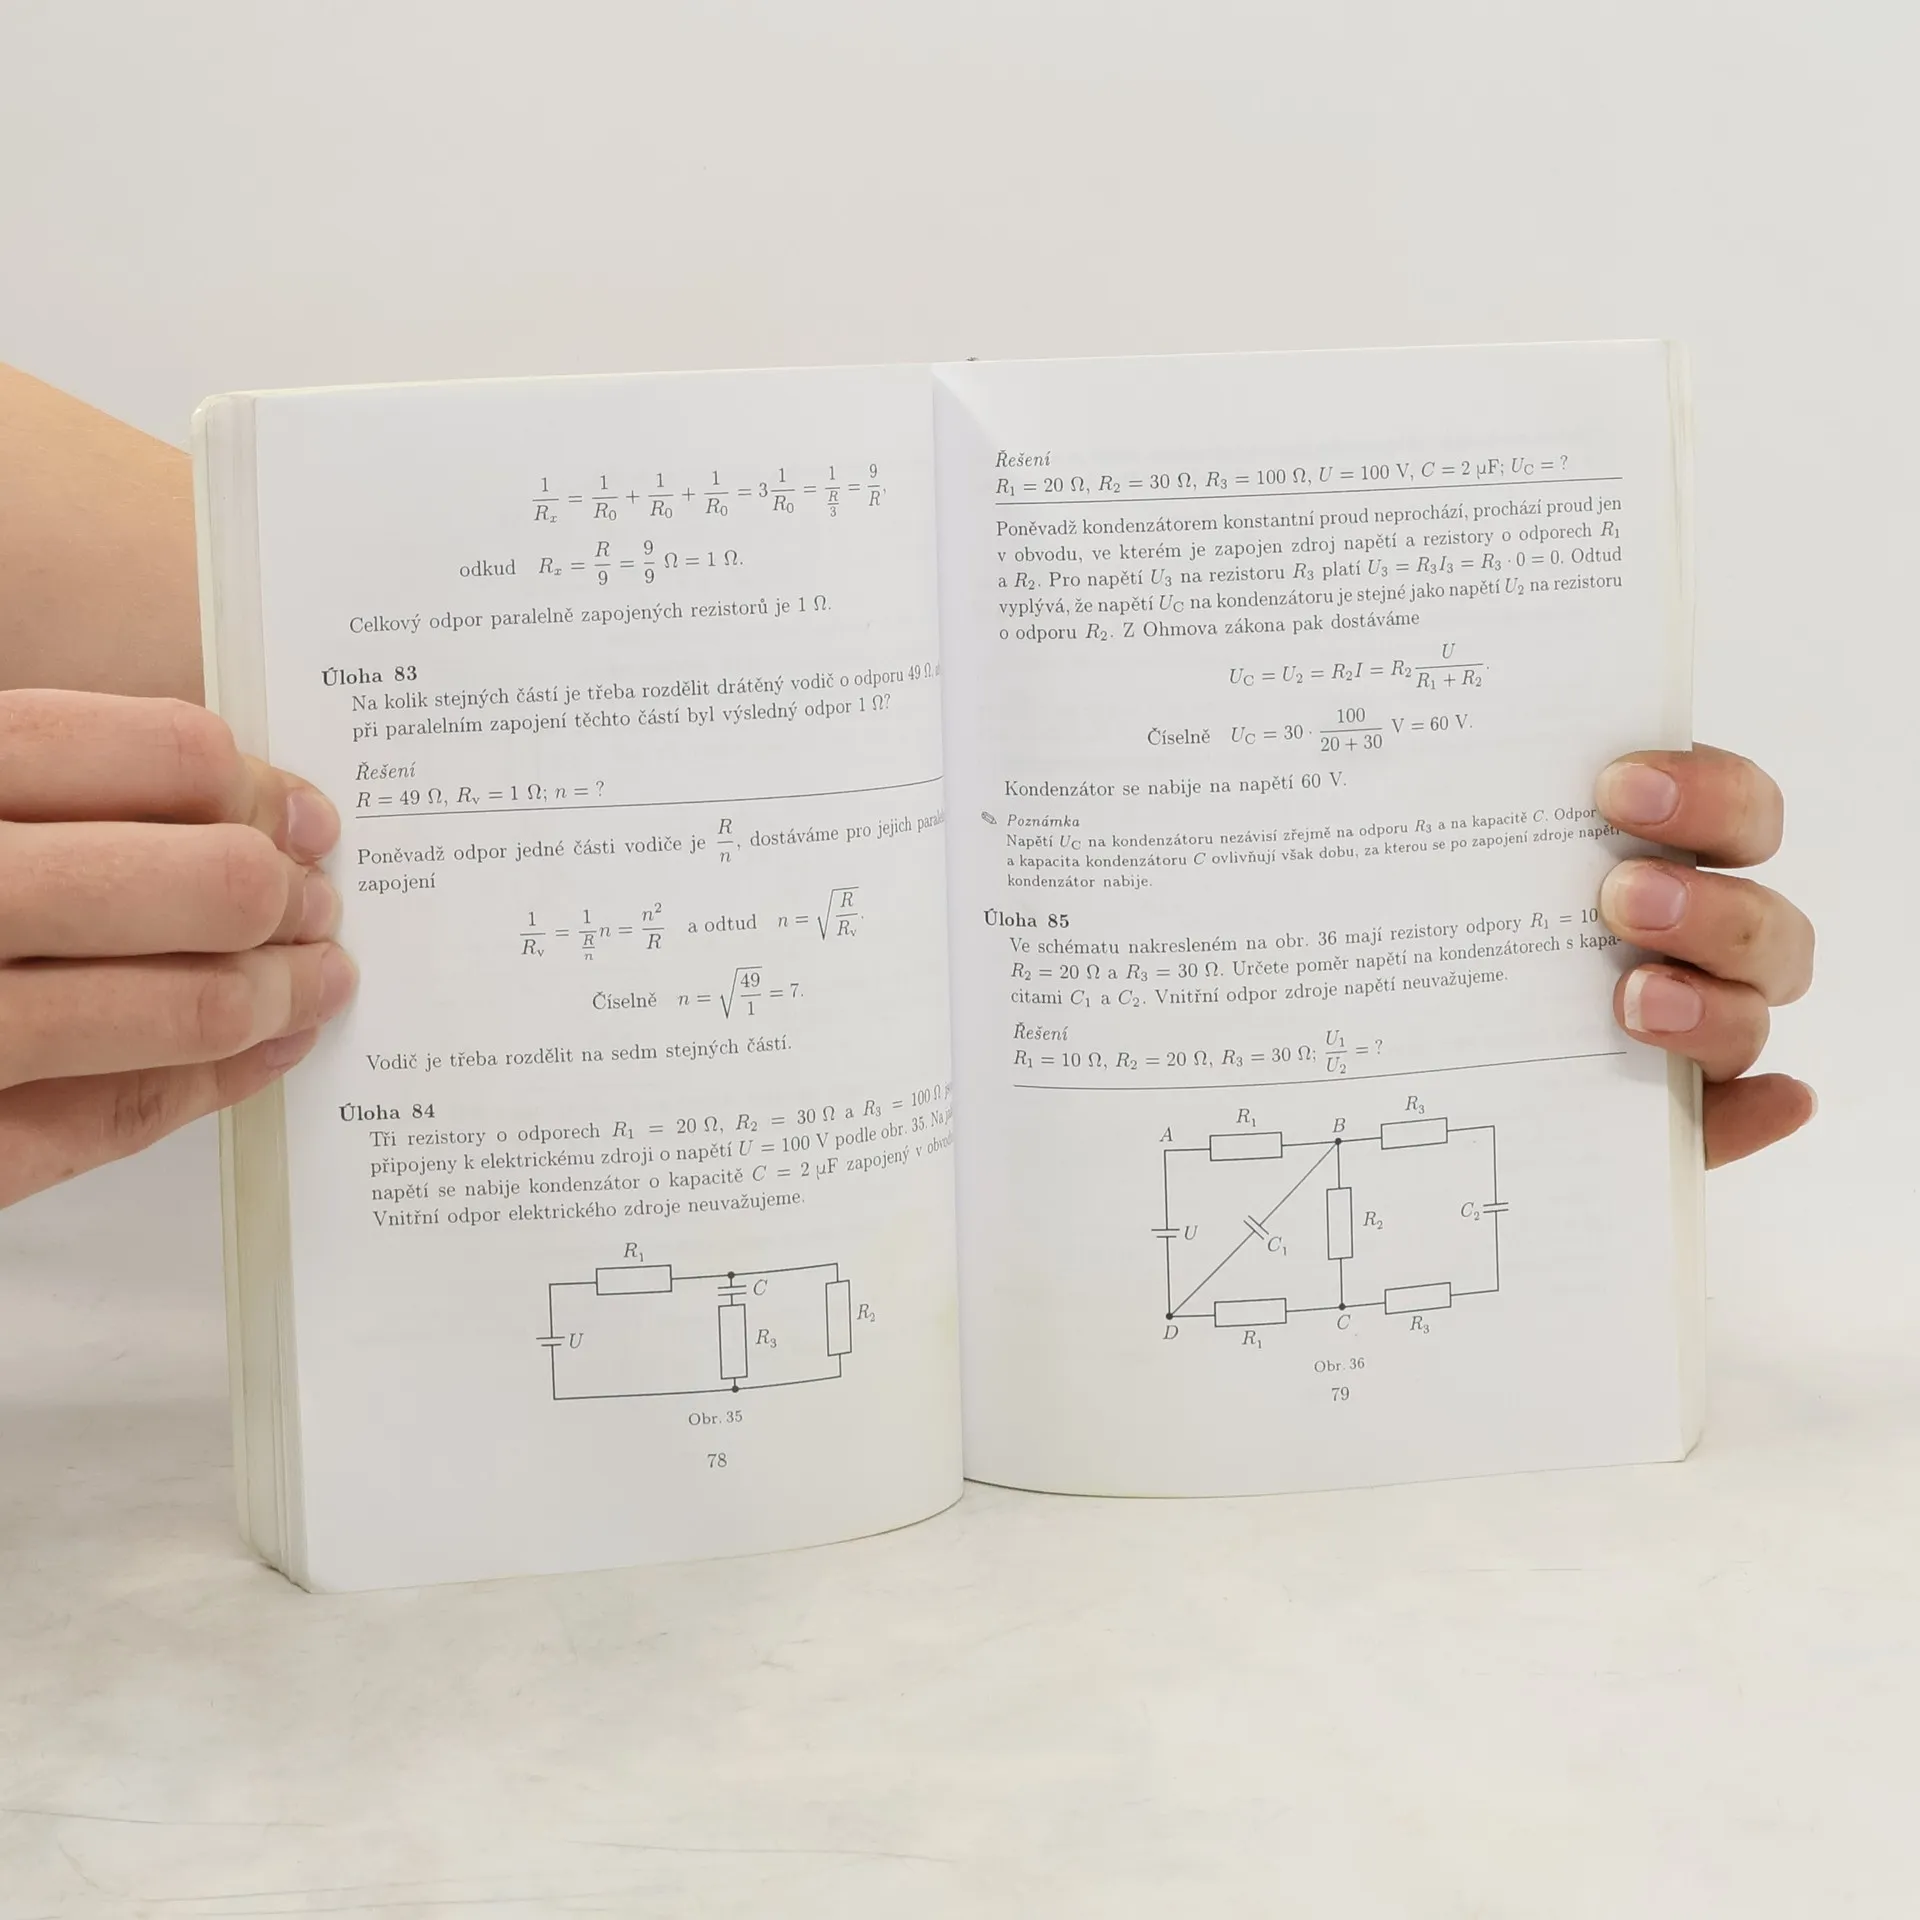 1/R_x = 1/R_0 + 1/R_0 + 1/R_0 = 3 1/R_0 = 1/(R/3) = 9/R,
odkud R_x = R/9 = 9/9 Ω = 1 Ω.
Celkový odpor paralelně zapojených rezistorů je 1 Ω.
Úloha 83
Na kolik stejných částí je třeba rozdělit drátěný vodič o odporu 49 Ω,
při paralelním zapojení těchto částí byl výsledný odpor 1 Ω?
Řešení
R = 49 Ω, R_v = 1 Ω; n = ?
Poněvadž odpor jedné části vodiče je R/n, dostáváme pro jejich
zapojení
1/R_v = 1/(R/n) n = n²/R a odtud n = √(R/R_v).
Číselně n = √(49/1) = 7.
Vodič je třeba rozdělit na sedm stejných částí.
Úloha 84
Tři rezistory o odporech R₁ = 20 Ω, R₂ = 30 Ω a R₃ = 100 Ω
připojeny k elektrickému zdroji o napětí U = 100 V podle obr. 35. Na
napětí se nabije kondenzátor o kapacitě C = 2 μF zapojený v
Vnitřní odpor elektrického zdroje neuvažujeme.
R₁
C
U
R₃
R₂
Obr. 35
78
Řešení
R₁ = 20 Ω, R₂ = 30 Ω, R₃ = 100 Ω, U = 100 V, C = 2 μF; U_C = ?
Poněvadž kondenzátorem konstantní proud neprochází, prochází proud jen
v obvodu, ve kterém je zapojen zdroj napětí a rezistory o odporech R₁
a R₂. Pro napětí U₃ na rezistoru R₃ platí U₃ = R₃I₃ = R₃ · 0 = 0. Odtud
vyplývá, že napětí U_C na kondenzátoru je stejné jako napětí U₂ na rezistoru
o odporu R₂. Z Ohmova zákona pak dostáváme
U_C = U₂ = R₂I = R₂ U/(R₁ + R₂).
Číselně U_C = 30 · 100/(20 + 30) V = 60 V.
Kondenzátor se nabije na napětí 60 V.
✎ Poznámka
Napětí U_C na kondenzátoru nezávisí zřejmě na odporu R₃ a na kapacitě C. Odpor
a kapacita kondenzátoru C ovlivňují však dobu, za kterou se po zapojení zdroje napětí
kondenzátor nabije.
Úloha 85
Ve schématu nakresleném na obr. 36 mají rezistory odpory R₁ = 10
R₂ = 20 Ω a R₃ = 30 Ω. Určete poměr napětí na kondenzátorech s kapa-
citami C₁ a C₂. Vnitřní odpor zdroje napětí neuvažujeme.
Řešení
R₁ = 10 Ω, R₂ = 20 Ω, R₃ = 30 Ω; U₁/U₂ = ?
A
R₁
B
R₃
U
C₁
R₂
C₂
D
R₁
C
R₃
Obr. 36
79